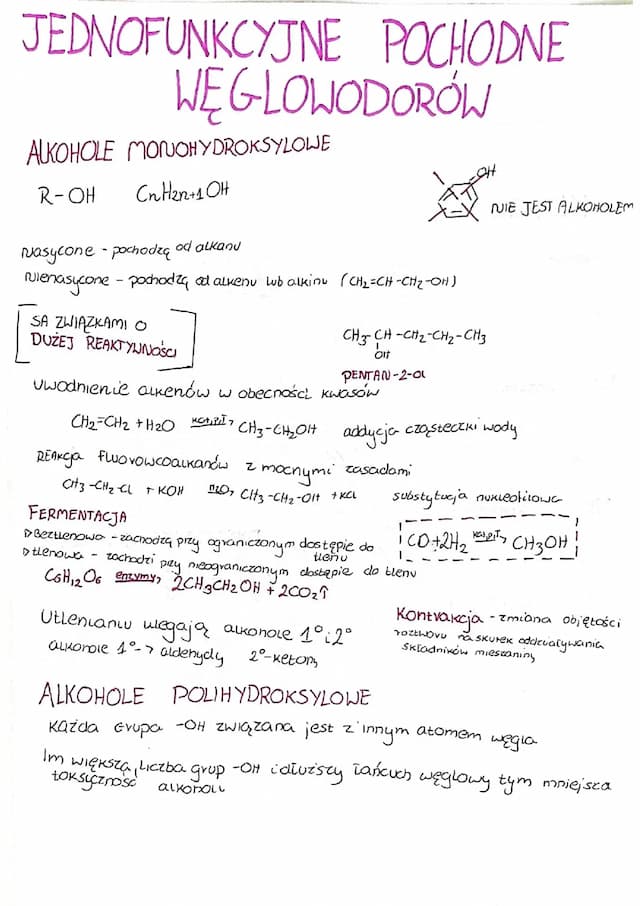 JEDNOFUNKCYJNE POCHODNE
WĘGLOWODORÓW
ALKOHOLE MONOHYDROKSYLOWE
R-OH CnH2n+1OH
OH
NIE JEST ALKOHOLEM
nasycone - pochodzą od alkanu
nienasycone - pochodzą od alkenu lub alkinu (CH2=CH-CH2-OH)
SĄ ZWIĄZKAMI O
DUŻEJ REAKTYWNOŚCI
CH3-CH-CH2-CH2-CH3
OH
PENTAN-2-ol
uwodnienie alkenów w obecności kwasów
CH2=CH2 + H2O katalit> CH3-CH2OH addycja cząsteczki wody
Reakcja fluorowcoalkanów z mocnymi zasadami
CH3-CH2-Cl + KOH H2O> CH3-CH2-OH + KCl substytucja nukleofilowa
FERMENTACJA
▷Beztlenowa - zachodzą przy ograniczonym dostępie do tlenu
▷tlenowa - zachodzi przy nieograniczonym dostępie do tlenu
C6H12O6 enzymy> 2CH3CH2OH + 2CO2↑
CO+2H2 katalit> CH3OH
Utlenianiu ulegają alkohole 1° i 2°
alkohole 1° -> aldehydy 2°-ketony
Kontrakcja - zmiana objętości
roztworu na skutek oddziaływania
składników mieszaniny
ALKOHOLE POLIHYDROKSYLOWE
Każda grupa -OH związana jest z innym atomem węgla
Im większa liczba grup -OH i dłuższy łańcuch węglowy tym mniejsza
toksyczność alkoholu